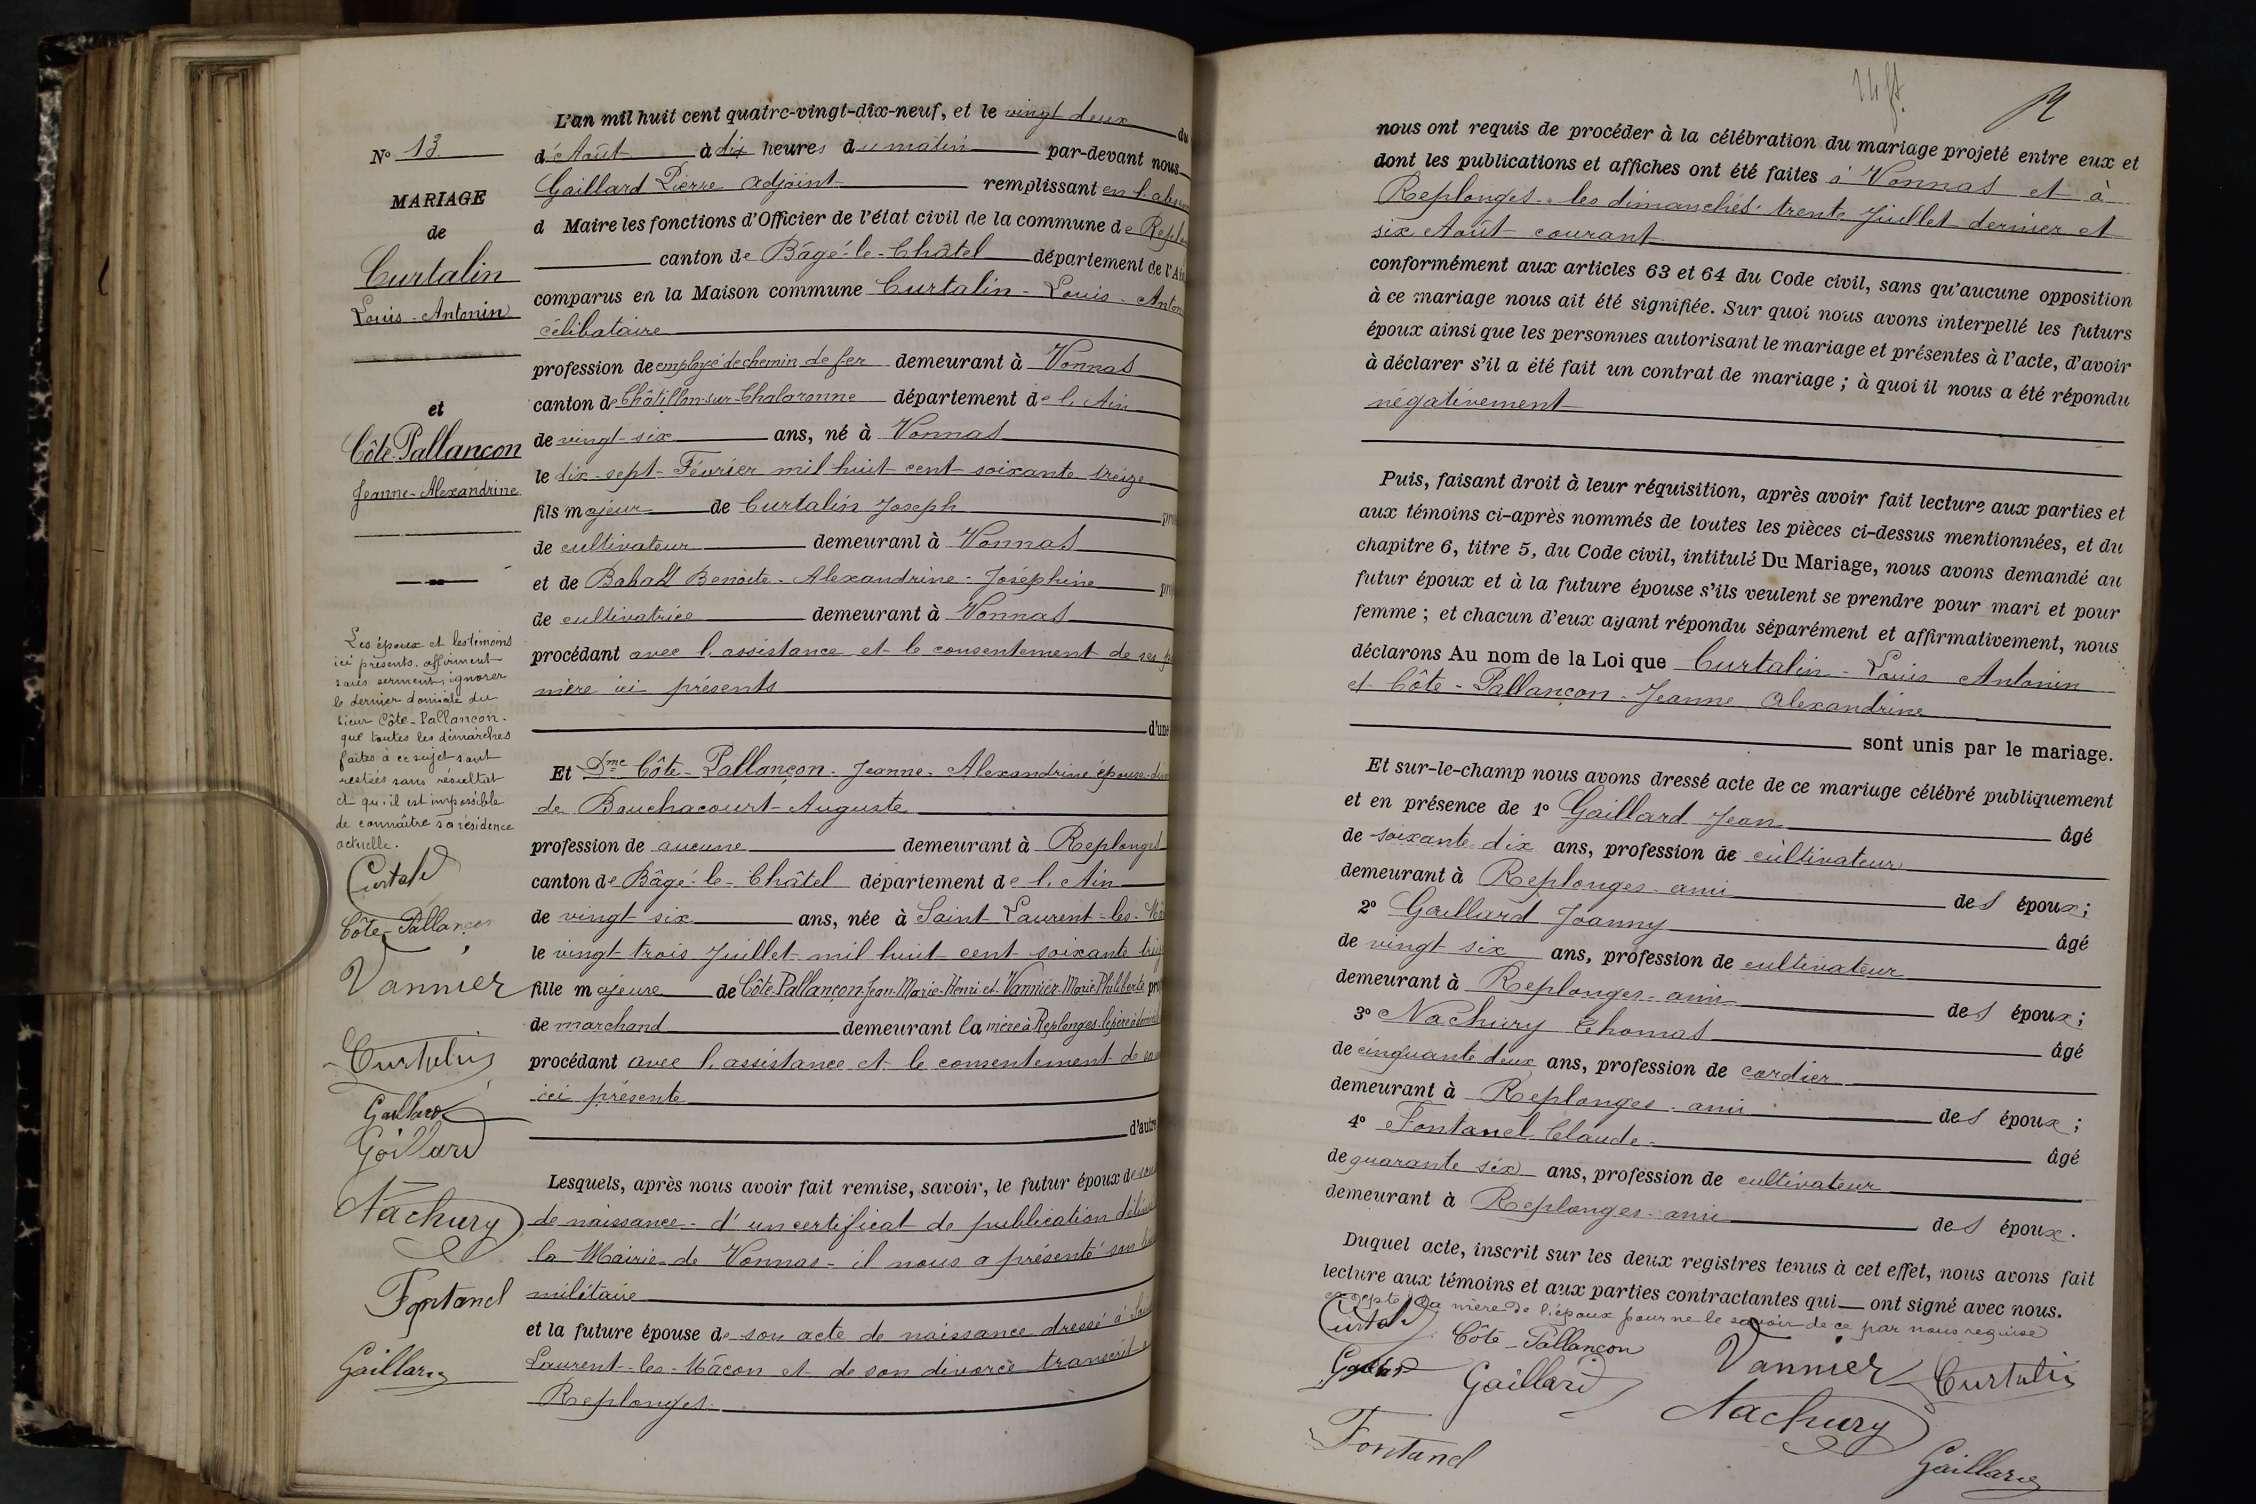 N° 13
MARIAGE
de
Curtalin
Louis-Antonin
et
Côte-Pallançon
Jeanne-Alexandrine
Les époux et les témoins
ici présents affirment
sans serment, ignorer
le dernier domicile du
sieur Côte-Pallançon.
que toutes les démarches
faites à ce sujet sont
restées sans résultat
et qu'il est impossible
de connaître sa résidence
actuelle.
Côte-Pallançon
Vannier
Curtalin
Gaillard
Gaillard
Nachury
Fontanel
Gaillard
L'an mil huit cent quatre-vingt-dix-neuf, et le vingt deux du
d'Août à dix heures du matin par-devant nous
Gaillard Pierre adjoint remplissant en l'absen
d Maire les fonctions d'Officier de l'état civil de la commune de Replo
canton de Bâgé-le-Châtel département de l'Ain
comparus en la Maison commune Curtalin-Louis-Anton
célibataire
profession de employé de chemin de fer demeurant à Vonnas
canton de Châtillon-sur-Chalaronne département de l'Ain
de vingt-six ans, né à Vonnas
le dix-sept Février mil huit cent soixante treize
fils majeur de Curtalin Joseph
de cultivateur demeurant à Vonnas
et de Benoite-Alexandrine-Joséphine
de cultivatrice demeurant à Vonnas
procédant avec l'assistance et le consentement de ses
mère ici présents
d'une
Et Dme Côte-Pallançon-Jeanne-Alexandrine épouse
de Bouchacourt-Auguste
profession de aucune demeurant à Replonges
canton de Bâgé-le-Châtel département de l'Ain
de vingt six ans, née à Saint-Laurent-les-Mâ
le vingt trois Juillet mil huit cent soixante trei
fille majeure de Côte-Pallançon Jean-Marie-Henri et Vannier Marie Philiberte pro
de marchand demeurant la mère à Replonges le père
procédant avec l'assistance et le consentement de
ici présente
d'autre
Lesquels, après nous avoir fait remise, savoir, le futur époux de son
de naissance-d'un certificat de publication
la Mairie de Vonnas-il nous a présenté son
militaire
et la future épouse de son acte de naissance dressé à
Laurent-les-Mâcon et de son divorce transcrit
Replonges.
nous ont requis de procéder à la célébration du mariage projeté entre eux et
dont les publications et affiches ont été faites à Vonnas et à
Replonges les dimanches trente Juillet dernier et
six Août courant
conformément aux articles 63 et 64 du Code civil, sans qu'aucune opposition
à ce mariage nous ait été signifiée. Sur quoi nous avons interpellé les futurs
époux ainsi que les personnes autorisant le mariage et présentes à l'acte, d'avoir
à déclarer s'il a été fait un contrat de mariage ; à quoi il nous a été répondu
négativement
Puis, faisant droit à leur réquisition, après avoir fait lecture aux parties et
aux témoins ci-après nommés de toutes les pièces ci-dessus mentionnées, et du
chapitre 6, titre 5, du Code civil, intitulé Du Mariage, nous avons demandé au
futur époux et à la future épouse s'ils veulent se prendre pour mari et pour
femme ; et chacun d'eux ayant répondu séparément et affirmativement, nous
déclarons Au nom de la Loi que Curtalin-Louis Antonin
et Côte-Pallançon-Jeanne Alexandrine
sont unis par le mariage.
Et sur-le-champ nous avons dressé acte de ce mariage célébré publiquement
et en présence de 1° Gaillard Jean âgé
de soixante dix ans, profession de cultivateur
demeurant à Replonges-ami des époux;
2° Gaillard Joanny âgé
de vingt six ans, profession de cultivateur
demeurant à Replonges-ami des époux;
3° Nachury Thomas âgé
de cinquante deux ans, profession de cordier
demeurant à Replonges-ami des époux ;
4° Fontanel Claude âgé
de quarante six ans, profession de cultivateur
demeurant à Replonges-ami des époux.
Duquel acte, inscrit sur les deux registres tenus à cet effet, nous avons fait
lecture aux témoins et aux parties contractantes qui ont signé avec nous.
excepté la mère de l'époux pour ne le savoir de ce par nous requise
Côte-Pallançon
Vannier
Curtalin
Gaillard
Nachury
Fontanel
Gaillard